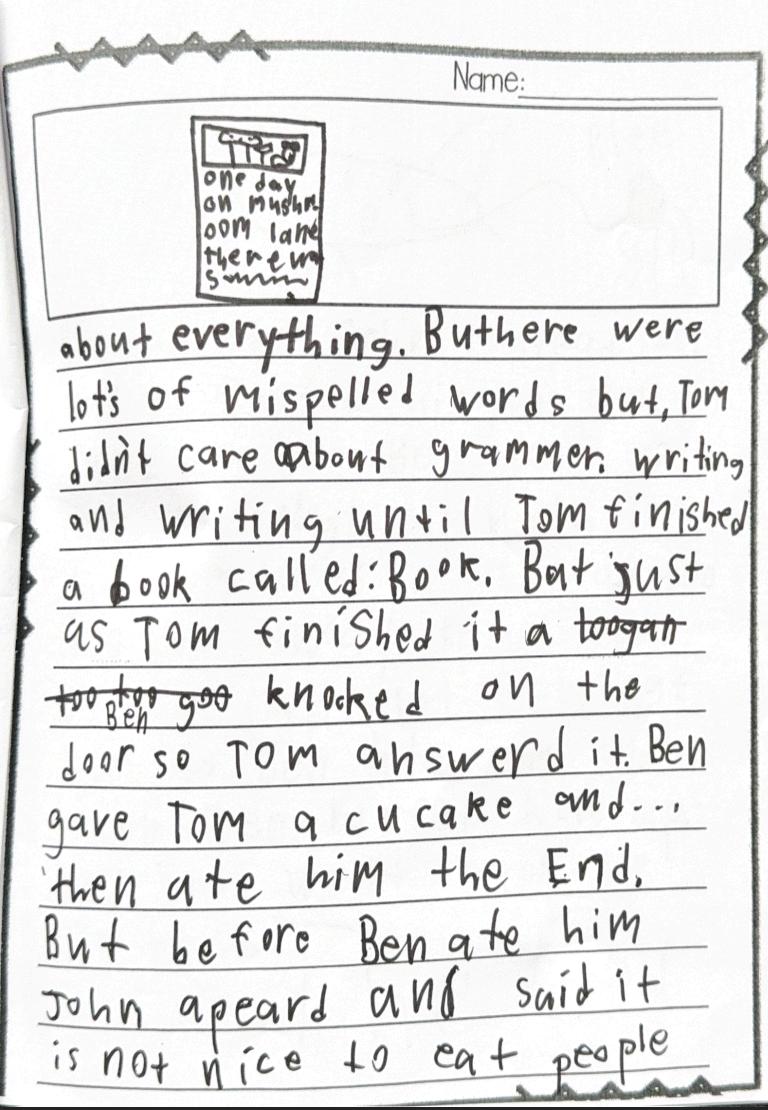 Name:
one day
on mushr
oom lane
there wa
s
about everything. Buthere were
lot's of mispelled words but, Tom
didn't care about grammer. writing
and writing until Tom finished
a book called: Book. But just
as Tom finiShed it a toogan
too too goo knocked on the
Ben
door so Tom answerd it. Ben
gave Tom a cucake and...
then ate him the End.
But before Ben ate him
John apeard and said it
is not nice to eat people